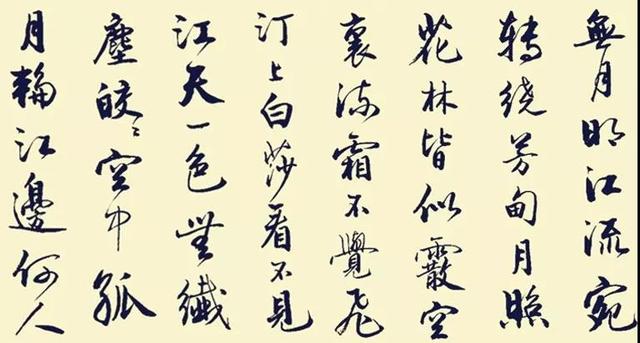 無月明江流宛
轉繞芳甸月照
花林皆似霰空
裏流霜不覺飛
汀上白莎看不見
江天一色無纖
塵皎〻空中孤
月輪江邊何人